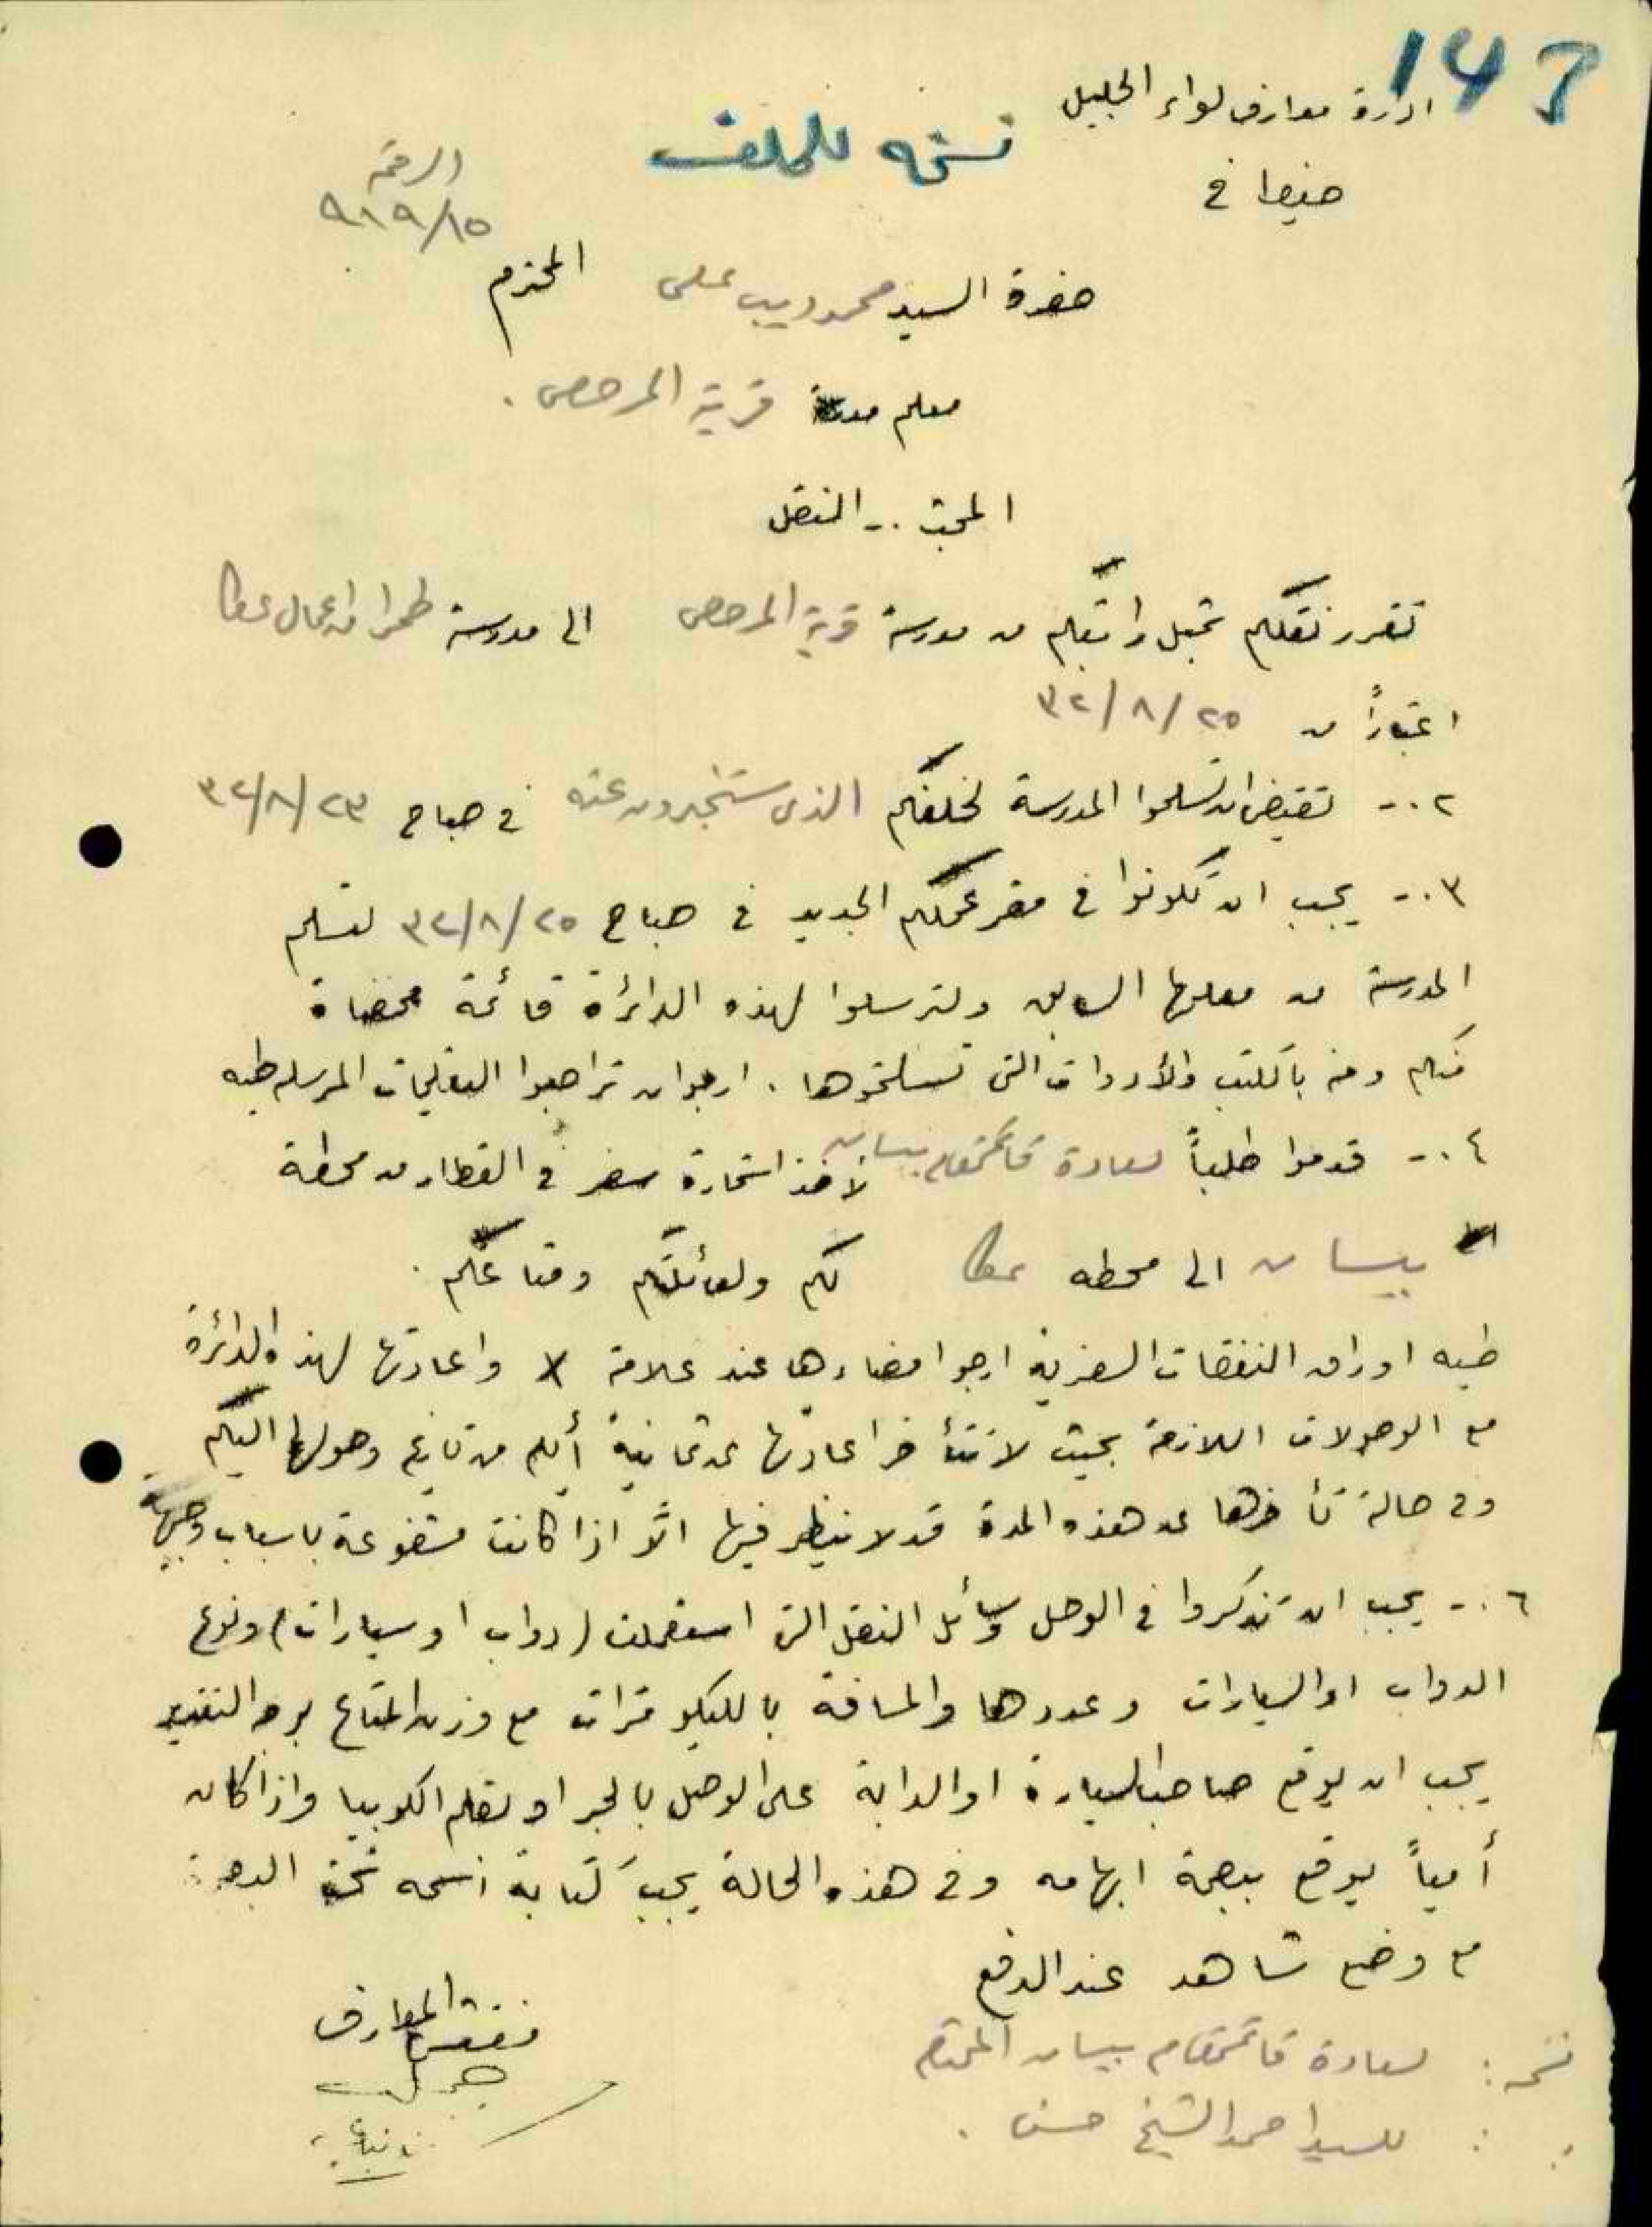 143
ادارة معارف لواء الجليل
نسخه للملف
حيفا في
الرقم
٩١٩/١٥
حضرة السيد محمد ديب علي المحترم
معلم قرية المرصص .
المبحث .- النقل
تقرر نقلكم تحيل راتبكم من مدرسة قرية المرصص الى مدرسة طمرا من اعمال عكا
اعتباراً من ٢٥/٨/٣٢
٢ .- تقتضي ان تسلموا المدرسة لخلفكم الذي ستخبرون عنه في صباح ٢٣/٨/٣٢
٣ .- يجب ان تكونوا في مقر عملكم الجديد في صباح ٢٥/٨/٣٢ لتسلم
المدرسة من معلمها السابق ولترسلوا لهذه الدائرة قائمة ممضاة
منكم ومنه بالكتب والأدوات التي تسلمتموها . ارجو ان تراجعوا التعليمات المرسله طيه
٤ .- قدموا طلباً لسعادة قائمقام بيسان لأخذ استمارة سفر في القطار من محطة
بيسان الى محطه عكا لكم ولعائلتكم ومتاعكم .
طيه اوراق النفقات السفرية ارجو امضاءها عند علامة X واعادتها لهذه الدائرة
مع الوصولات اللازمة بحيث لا تتأخر اعادتها عن ثمانية أيام من تاريخ وصولها اليكم
وفي حالة تأخرها عن هذه المدة قد لا ينظر فيها الّا اذا كانت مشفوعة باسباب وجيهة
٦ .- يجب ان تذكروا في الوصل وسائل النقل التي استعملت (دواب او سيارات) ونوع
الدواب او السيارات وعددها والمسافة بالكيلو مترات مع وزن المتاع بوجه التقريب
يجب ان يوقع صاحب السيارة او الدابة على الوصل بالحبر او بقلم الكوبيا واذا كان
أمياً يوقع ببصمة ابهامه وفي هذه الحالة يجب كتابة اسمه تحت البصمة
مع وضع شاهد عند الدفع
مفتش المعارف
نسخة : لسعادة قائمقام بيسان المحترم
: : للسيد احمد الشيخ حسن .